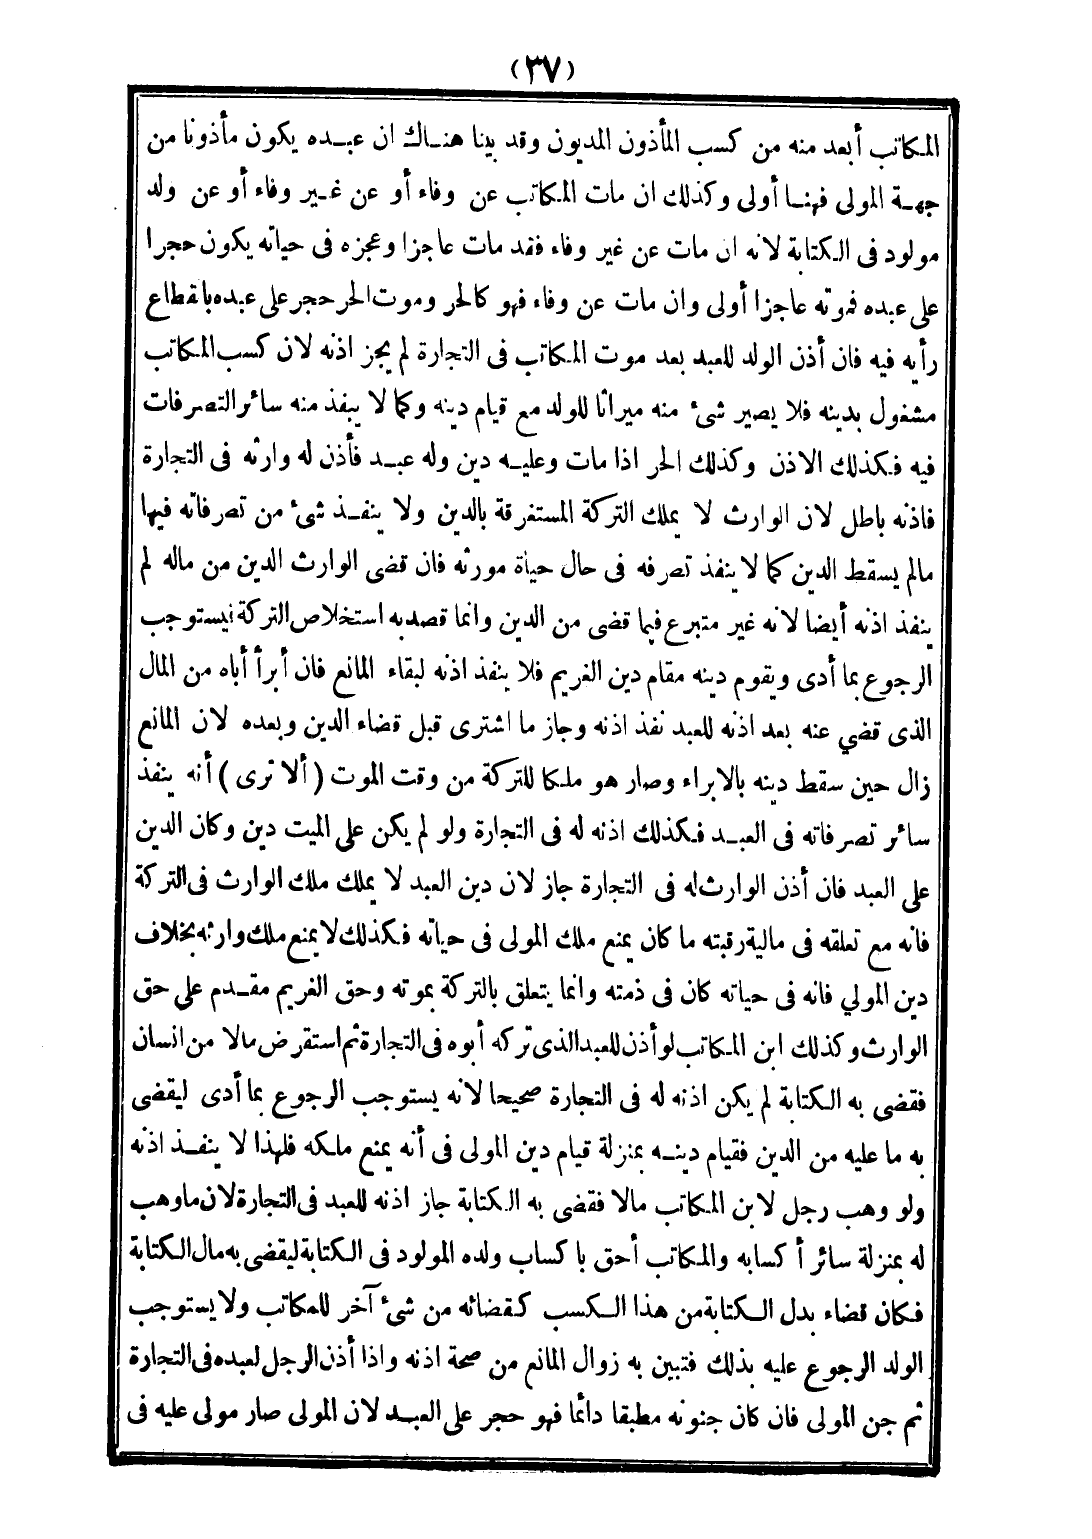 (٣٧)
المكاتب أبعد منه من كسب المأذون المديون وقد بينا هناك ان عبده يكون مأذونا من
جهة المولى فهنا أولى وكذلك ان مات المكاتب عن وفاء أو عن غير وفاء أو عن ولد
مولود فى الكتابة لانه ان مات عن غير وفاء فقد مات عاجزا وعجزه فى حياته يكون حجرا
على عبده فموته عاجزا أولى وان مات عن وفاء فهو كالحر وموت الحر حجر على عبده بانقطاع
رأيه فيه فان أذن الولد للعبد بعد موت المكاتب فى التجارة لم يجز اذنه لان كسب المكاتب
مشغول بدينه فلا يصير شئ منه ميراثا للولد مع قيام دينه وكما لا ينفذ منه سائر التصرفات
فيه فكذلك الاذن وكذلك الحر اذا مات وعليه دين وله عبد فأذن له وارثه فى التجارة
فاذنه باطل لان الوارث لا يملك التركة المستغرقة بالدين ولا ينفذ شئ من تصرفاته فيها
مالم يسقط الدين كما لا ينفذ تصرفه فى حال حياة مورثه فان قضى الوارث الدين من ماله لم
ينفذ اذنه أيضا لانه غير متبرع فيما قضى من الدين وانما قصد به استخلاص التركة فيستوجب
الرجوع بما أدى ويقوم دينه مقام دين الغريم فلا ينفذ اذنه لبقاء المانع فان أبرأ أباه من المال
الذى قضي عنه بعد اذنه للعبد نفذ اذنه وجاز ما اشترى قبل قضاء الدين وبعده لان المانع
زال حين سقط دينه بالابراء وصار هو ملكا للتركة من وقت الموت ( ألا ترى ) أنه ينفذ
سائر تصرفاته فى العبد فكذلك اذنه له فى التجارة ولو لم يكن على الميت دين وكان الدين
على العبد فان أذن الوارث له فى التجارة جاز لان دين العبد لا يملك ملك الوارث فى التركة
فانه مع تعلقه فى مالية رقبته ما كان يمنع ملك المولى فى حياته فكذلك لا يمنع ملك وارثه بخلاف
دين المولي فانه فى حياته كان فى ذمته وانما يتعلق بالتركة بموته وحق الغريم مقدم على حق
الوارث وكذلك ابن المكاتب لو أذن للعبد الذى تركه أبوه فى التجارة ثم استقرض مالا من انسان
فقضى به الكتابة لم يكن اذنه له فى التجارة صحيحا لانه يستوجب الرجوع بما أدى ليقضى
به ما عليه من الدين فقيام دينه بمنزلة قيام دين المولى فى أنه يمنع ملكه فلهذا لا ينفذ اذنه
ولو وهب رجل لابن المكاتب مالا فقضى به الكتابة جاز اذنه للعبد فى التجارة لان ما وهب
له بمنزلة سائر أكسابه والمكاتب أحق با كساب ولده المولود فى الكتابة ليقضى به مال الكتابة
فكان قضاء بدل الكتابة من هذا الكسب كقضائه من شئ آخر للمكاتب ولا يستوجب
الولد الرجوع عليه بذلك فتبين به زوال المانع من صحة اذنه واذا أذن الرجل لعبده فى التجارة
ثم جن المولى فان كان جنونه مطبقا دائما فهو حجر على العبد لان المولى صار مولى عليه فى